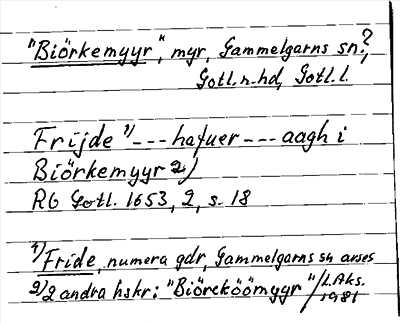 "Biörkemyyr", myr, Gammelgarns sn?,
Gotl. n. hd, Gotl. l.
Frijde 1) --- hafuer --- aagh i
Biörkemyyr 2)
RG Gotl. 1653, 2, s. 18
1) Fride, numera gdr, Gammelgarns sn avses
2) 2 andra hskr: "Biörcköömyyr" / L.Aks.
1981